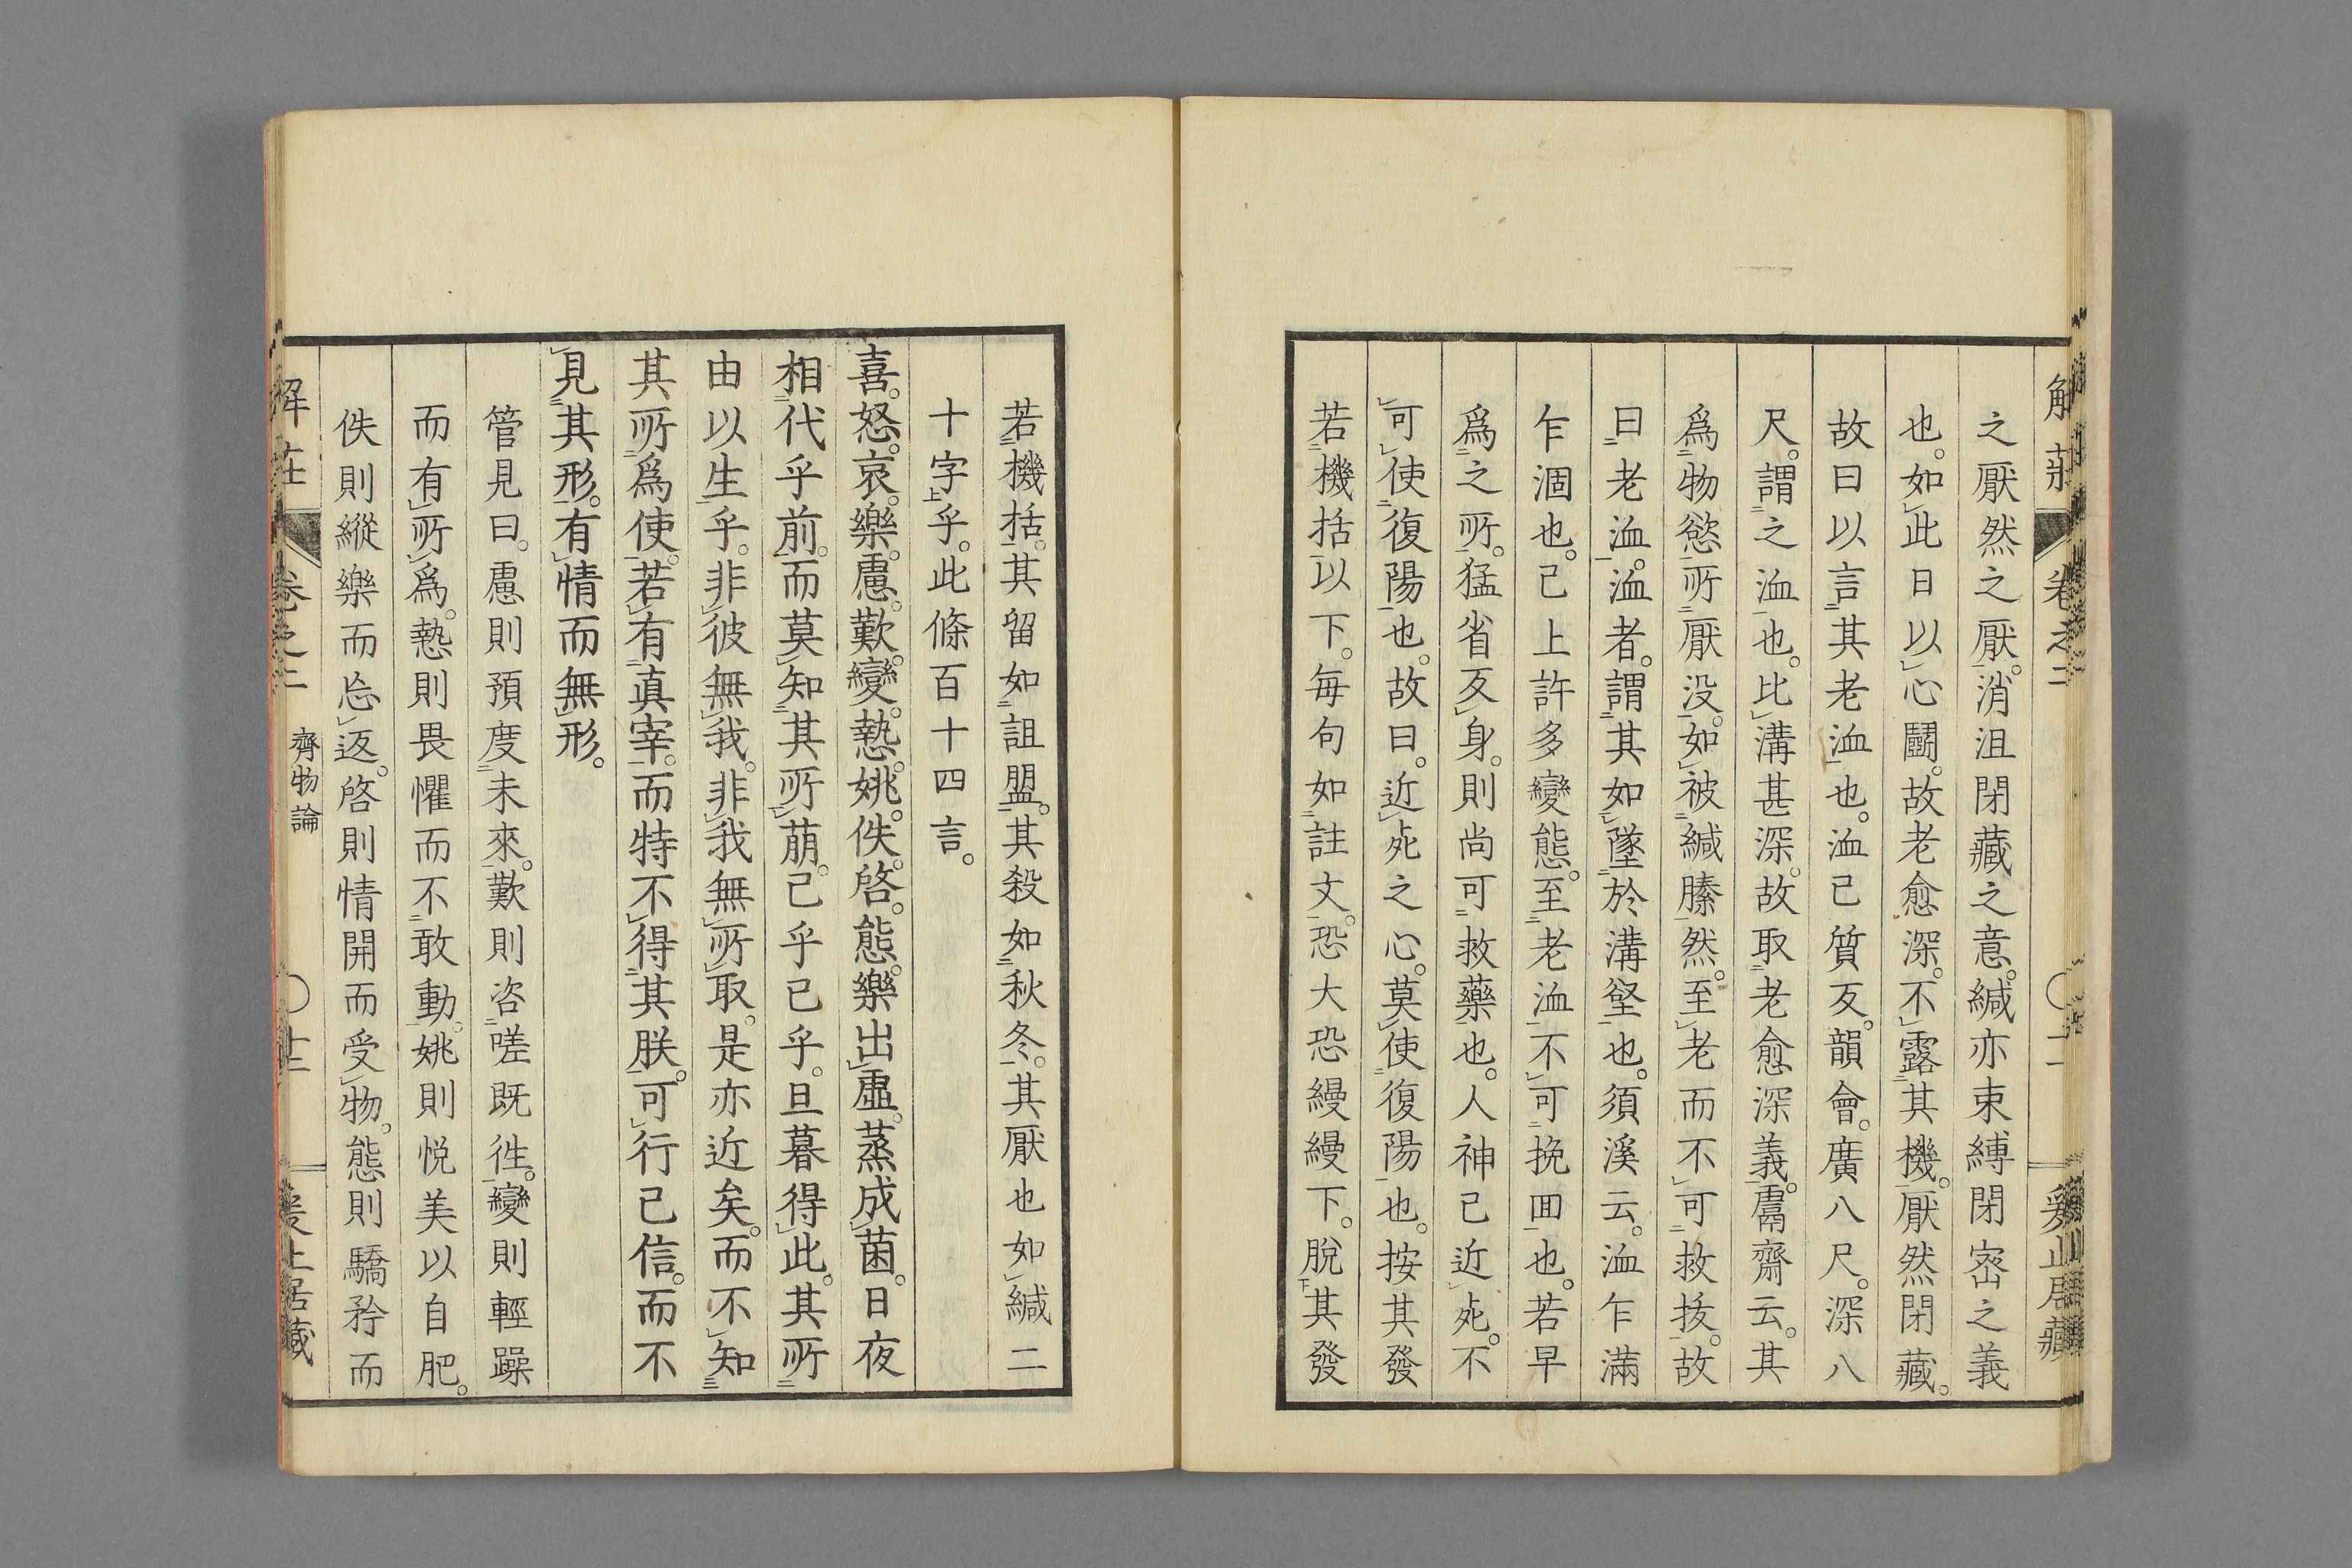 之厭然之厭。消沮閉藏之意。緘亦束縛閉宻之義
也。如此日以心鬭。故老愈深。不露其機。厭然閉藏。
故曰以言其老洫也。洫已質反。韻會。廣八尺。深八
尺。謂之洫也。比溝甚深。故取老愈深義。鬳齋云。其
爲物慾所厭没。如被緘縢然。至老而不可救拔。故
曰老洫。洫者。謂其如墜於溝壑也。須溪云。洫乍滿
乍涸也。已上許多變態。至老洫不可挽囬也。若早
爲之所。猛省反身。則尚可救藥也。人神已近死。不
可使復陽也。故曰。近死之心。莫使復陽也。按其發
若機括以下。毎句如註文。恐大恐縵縵下。脫其發
若機括。其留如詛盟。其殺如秋冬。其厭也如緘二
十字乎。此條百十四言。
喜。怒。哀。樂。慮。歎。變。慹。姚。佚。啓。態。樂出虛。蒸成菌。日夜
相代乎前。而莫知其所萌。已乎已乎。旦暮得此。其所
由以生乎。非彼無我。非我無所取。是亦近矣。而不知
其所爲使。若有真宰。而特不得其朕。可行已信。而不
見其形。有情而無形。
管見曰。慮則預度未來。歎則咨嗟既徃。變則輕躁
而有所爲。慹則畏懼而不敢動。姚則悦美以自肥。
佚則縱樂而忘返。啓則情開而受物。態則驕矜而
卷之二
齊物論